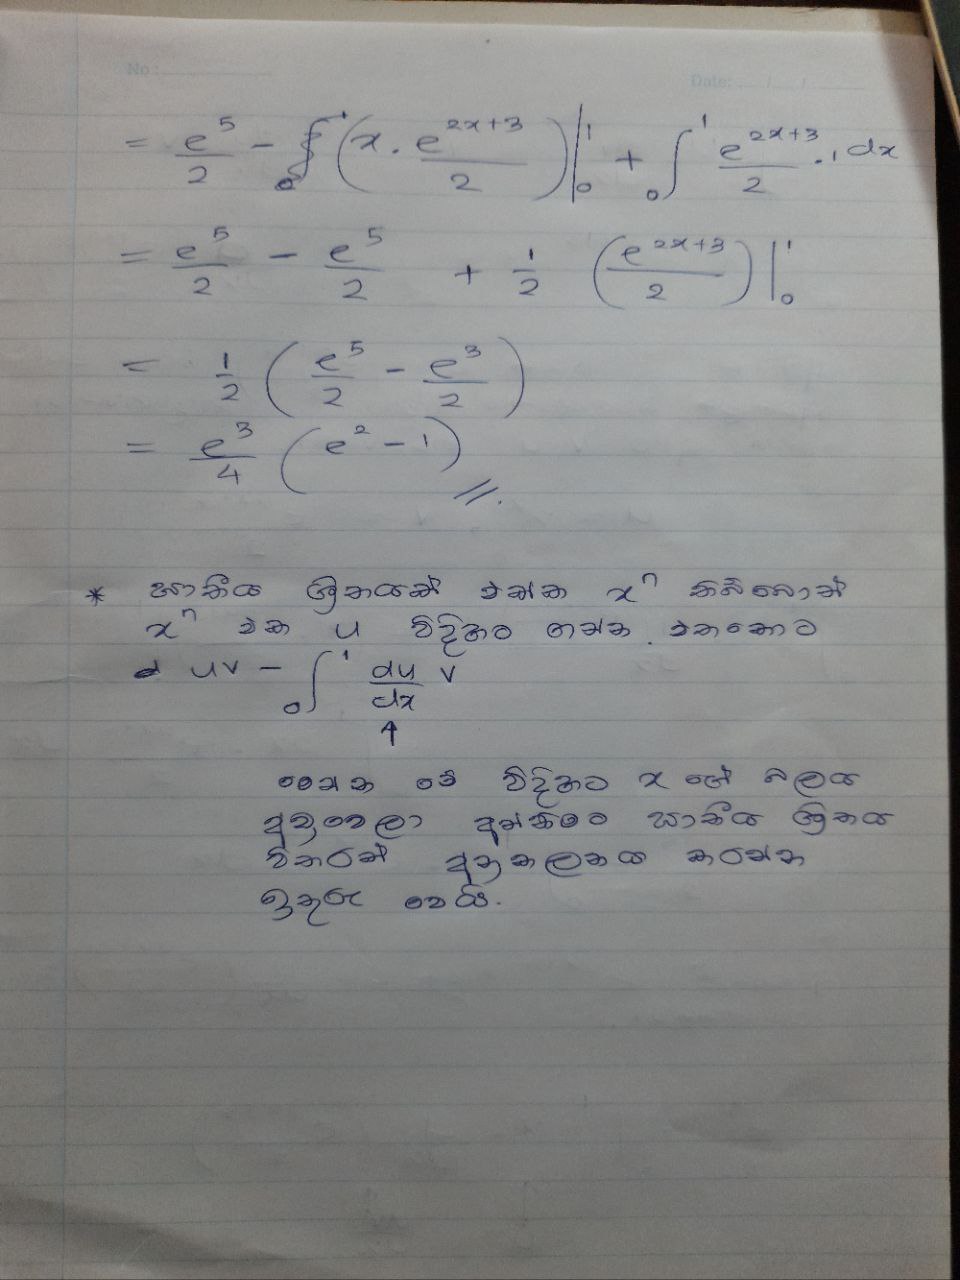 No :
Date: / /
= e^5/2 - ∫_0^1 (x . e^{2x+3}/2)|_0^1 + ∫_0^1 e^{2x+3}/2 . 1 dx
= e^5/2 - e^5/2 + 1/2 (e^{2x+3}/2)|_0^1
= 1/2 (e^5/2 - e^3/2)
= e^3/4 (e^2 - 1) //.
* ඝාතීය ශ්‍රිතයක් එක්ක x^n තිබ්බොත්
x^n එක u විදිහට ගන්න. එතකොට
uv - ∫_0^1 du/dx v
↑
මෙතන මේ විදිහට x ගේ බලය
අඩුවෙලා අන්තිමට ඝාතීය ශ්‍රිතය
විතරක් අනුකලනය කරන්න
ඉතුරු වෙයි.